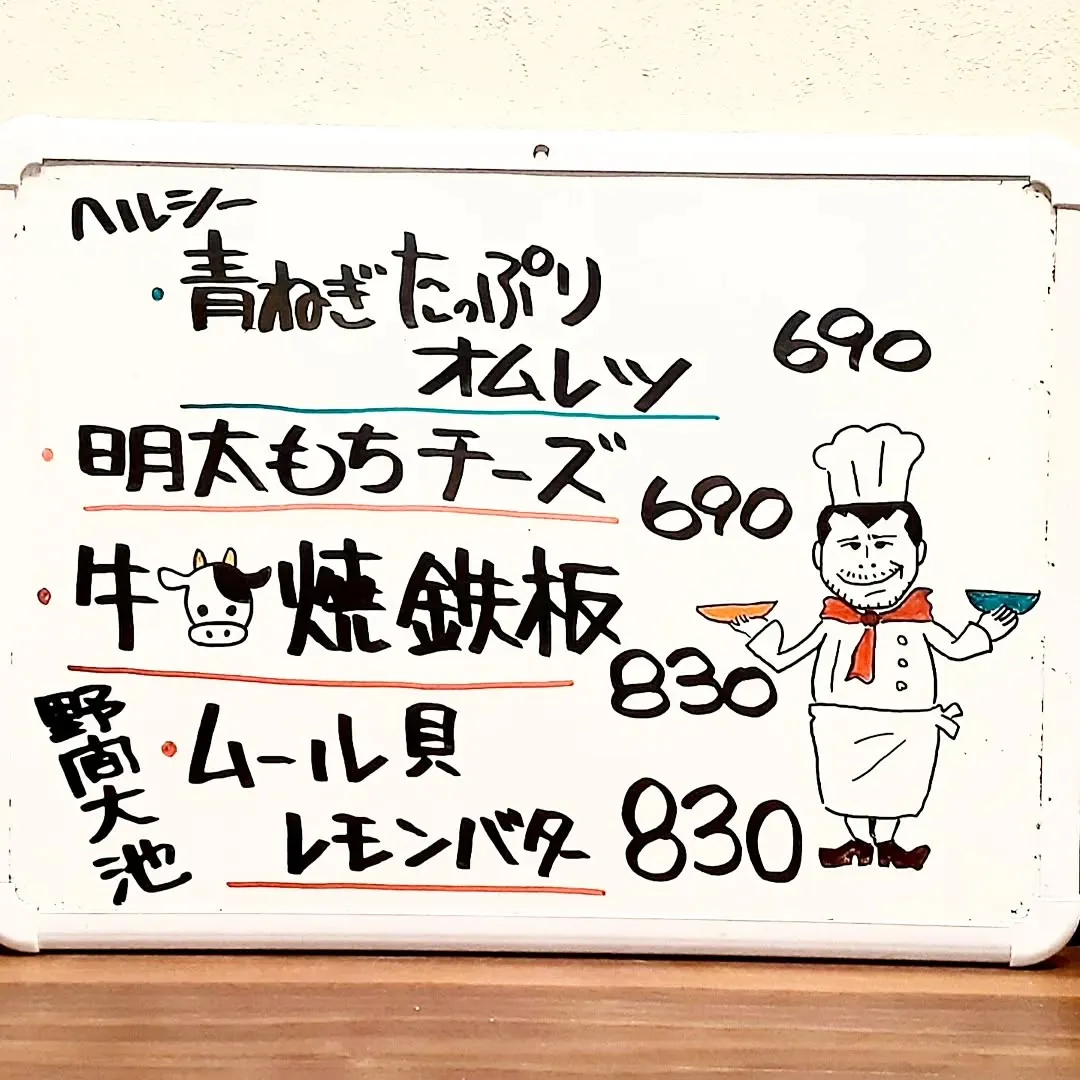 ヘルシー
・青ねぎたっぷり
オムレツ
690
・明太もちチーズ
690
・牛焼鉄板
830
野間大池
・ムール貝
レモンバター
830